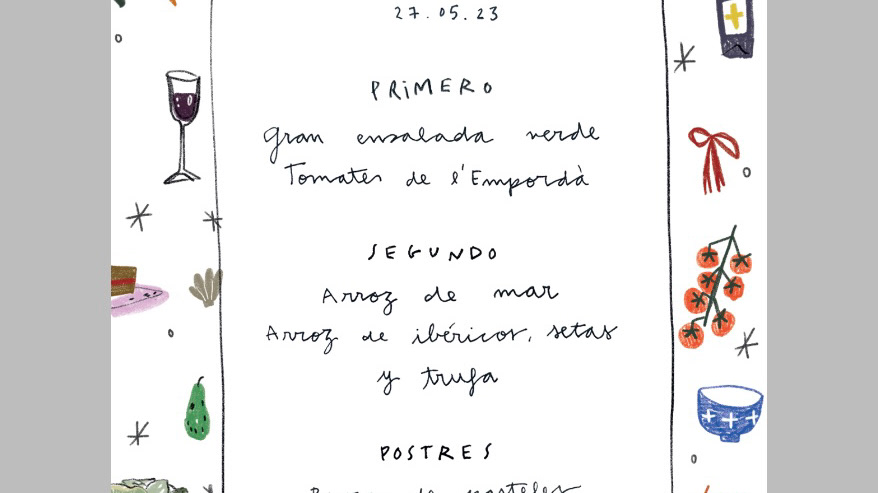 27.05.23
PRiMERO
Gran ensalada verde
Tomates de l'Empordà
SEGUNDO
Arroz de mar
Arroz de ibéricos, setas
y trufa
POSTRES
de pasteles